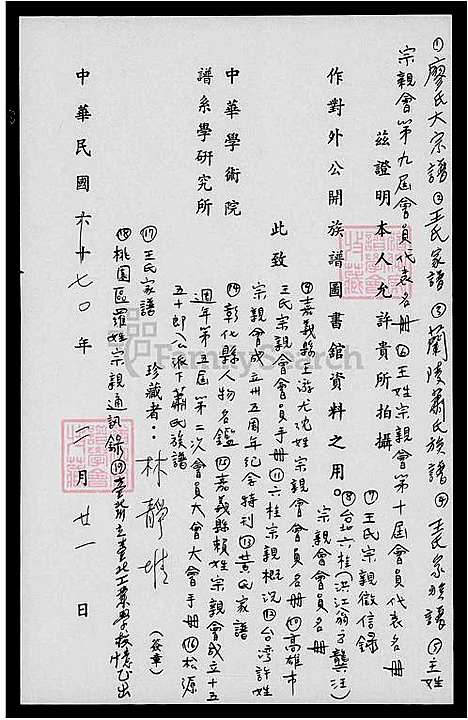 ①廖氏大宗譜②王氏家譜③蘭陵蕭氏族譜④王氏宗族譜⑤王姓
宗親會第九屆會員代表名冊⑥王姓宗親會第十屆會員代表名冊
茲證明本人允許貴所拍攝
⑦王氏宗親徵信錄
作對外公開族譜圖書館資料之用。
⑧台北六桂(洪江翁方龔汪)
宗親會會員名冊
此致
⑨嘉義縣王游尤沈姓宗親會會員名冊⑩高雄市
王氏宗親會會員手冊⑪六桂宗親概況⑫台灣許姓
宗親會成立卅五周年紀念特刊⑬黃氏家譜
中華學術院
⑭彰化縣人物名鑑⑮嘉義縣賴姓宗親會成立十五
譜系學研究所
週年第五屆第二次會員大會大會手冊⑯松源
五十郎公派下蕭氏族譜
珍藏者：林靜
(簽章)
⑰王氏家譜
⑱桃園區羅姓宗親通訊錄⑲臺灣省立臺北工業學校
中華民國 七〇年 二月廿一日
FamilySearch